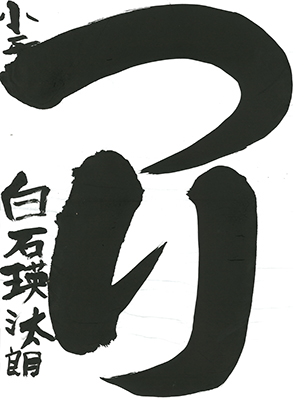 つり
小五
白石瑛汰朗